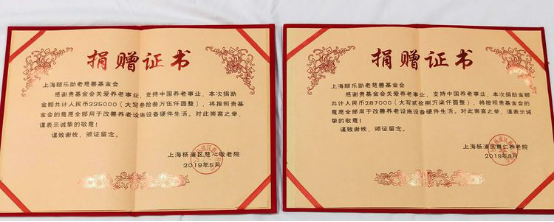 捐赠证书
上海颐乐助老慈善基金会
感谢贵基金会关爱养老事业，支持中国养老事业，本次捐助
金额共计人民币335000（大写叁拾叁万伍仟圆整），将按照贵基金
会的意愿全部用于改善养老设施设备硬件生活。对此善意之举，
谨表示诚挚的敬意！
谨致谢忱，颁证留念。
上海杨浦区慈仁敬老院
2019年5月
捐赠证书
上海颐乐助老慈善基金会
感谢贵基金会关爱养老事业，支持中国养老事业，本次捐助金额
共计人民币287000（大写贰拾捌万柒仟圆整），将按照贵基金会的
意愿全部用于改善养老设施设备硬件生活。对此善意之举，谨表示诚
挚的敬意！
谨致谢忱，颁证留念。
上海杨浦区慈仁养老院
2019年5月